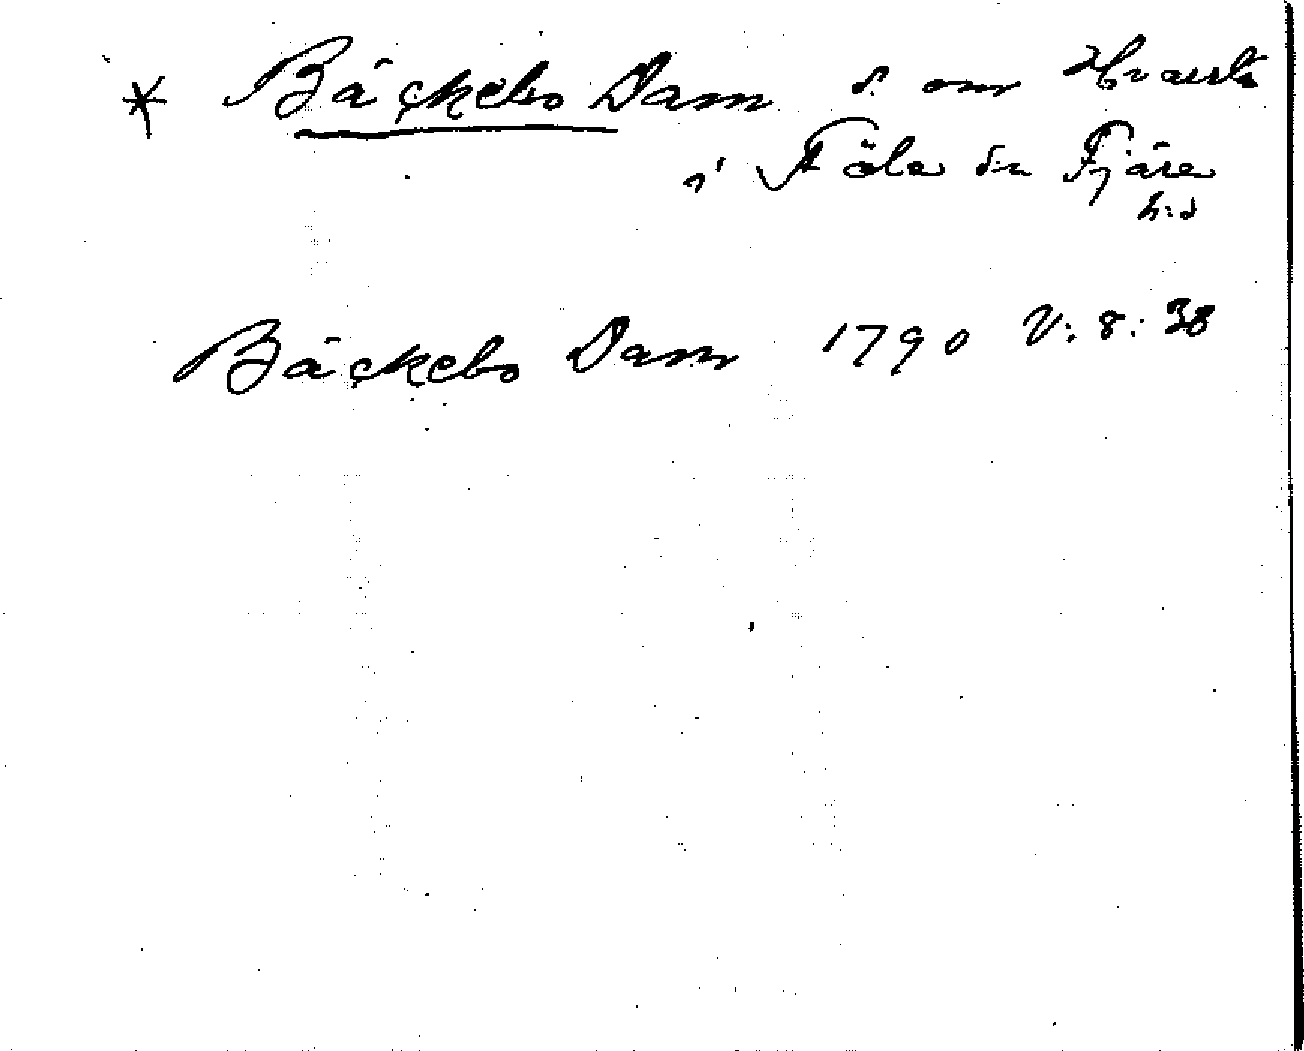 * Bäckebo Dam s. om
i Föla sn Fjäre
h:d
Bäckebo Dam 1790 V: 8: 38